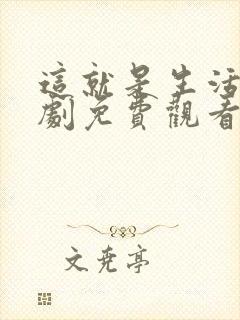 這就是生活
劇免費觀看
文尭亭